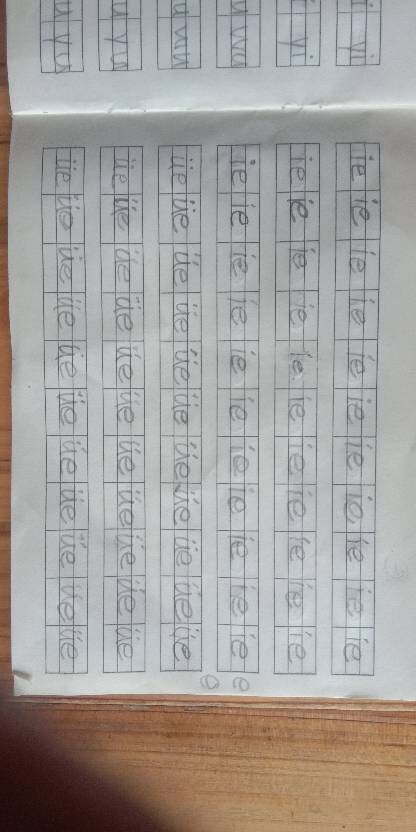 yi ie ie ie ie ie ie ie ie ie ie ie
yi ie ie ie ie ie ie ie ie ie ie ie
wu ie ie ie ie ie ie ie ie ie ie ie e
e
wu üe üe üe üe üe üe üe üe üe üe üe
yu üe üe üe üe üe üe üe üe üe üe üe
yu üe üe üe üe üe üe üe üe üe üe üe